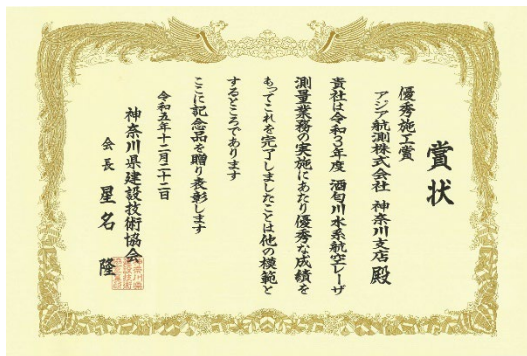 賞状
優秀施工賞
アジア航測株式会社 神奈川支店 殿
貴社は令和3年度 酒匂川水系航空レーザ
測量業務の実施にあたり優秀な成績を
もってこれを完了しましたことは他の模範と
するところであります
ここに記念品を贈り表彰します
令和五年十二月二十二日
神奈川県建設技術協会
会長 星名 隆